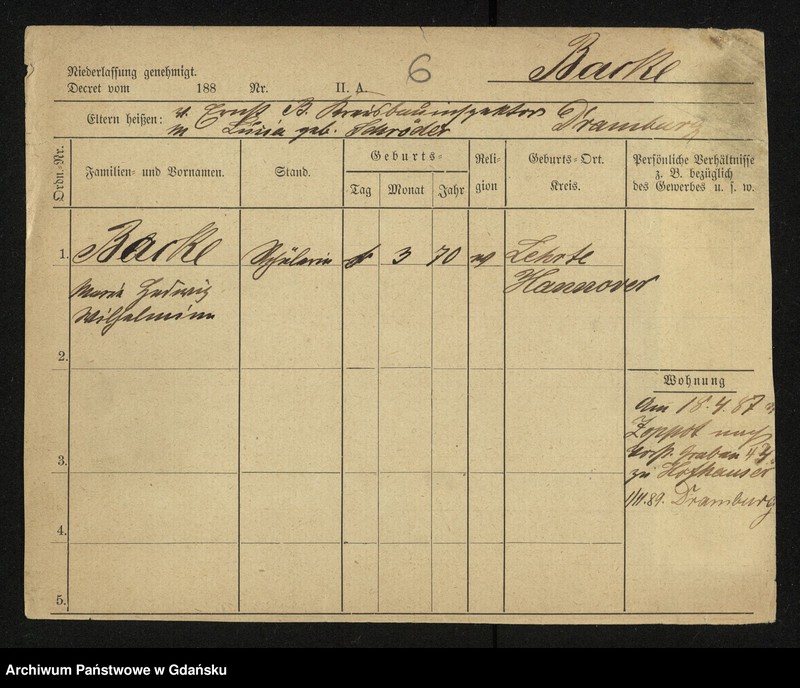 Niederlassung genehmigt.
Decret vom 188 Nr. II. A.
6
Backe
Eltern heißen: v. Ernst B. Kreisbauinspektor Dramburg
m Luisa geb. Schröder
Ordn.-Nr.
Familien- und Vornamen.
Stand.
Geburts-
Tag Monat Jahr
Reli-
gion
Geburts-Ort.
Kreis.
Persönliche Verhältnisse
z. B. bezüglich
des Gewerbes u. s. w.
1. Backe Schülerin 3 70 ev Lehrte
Hannover
Marie Hedwig
Wilhelmine
2.
3.
4.
5.
Wohnung
Am 18.4.87 v
Zoppot nach
vorst. Graben
zu Hofhauser
1/11.89. Dramburg
Archiwum Państwowe w Gdańsku